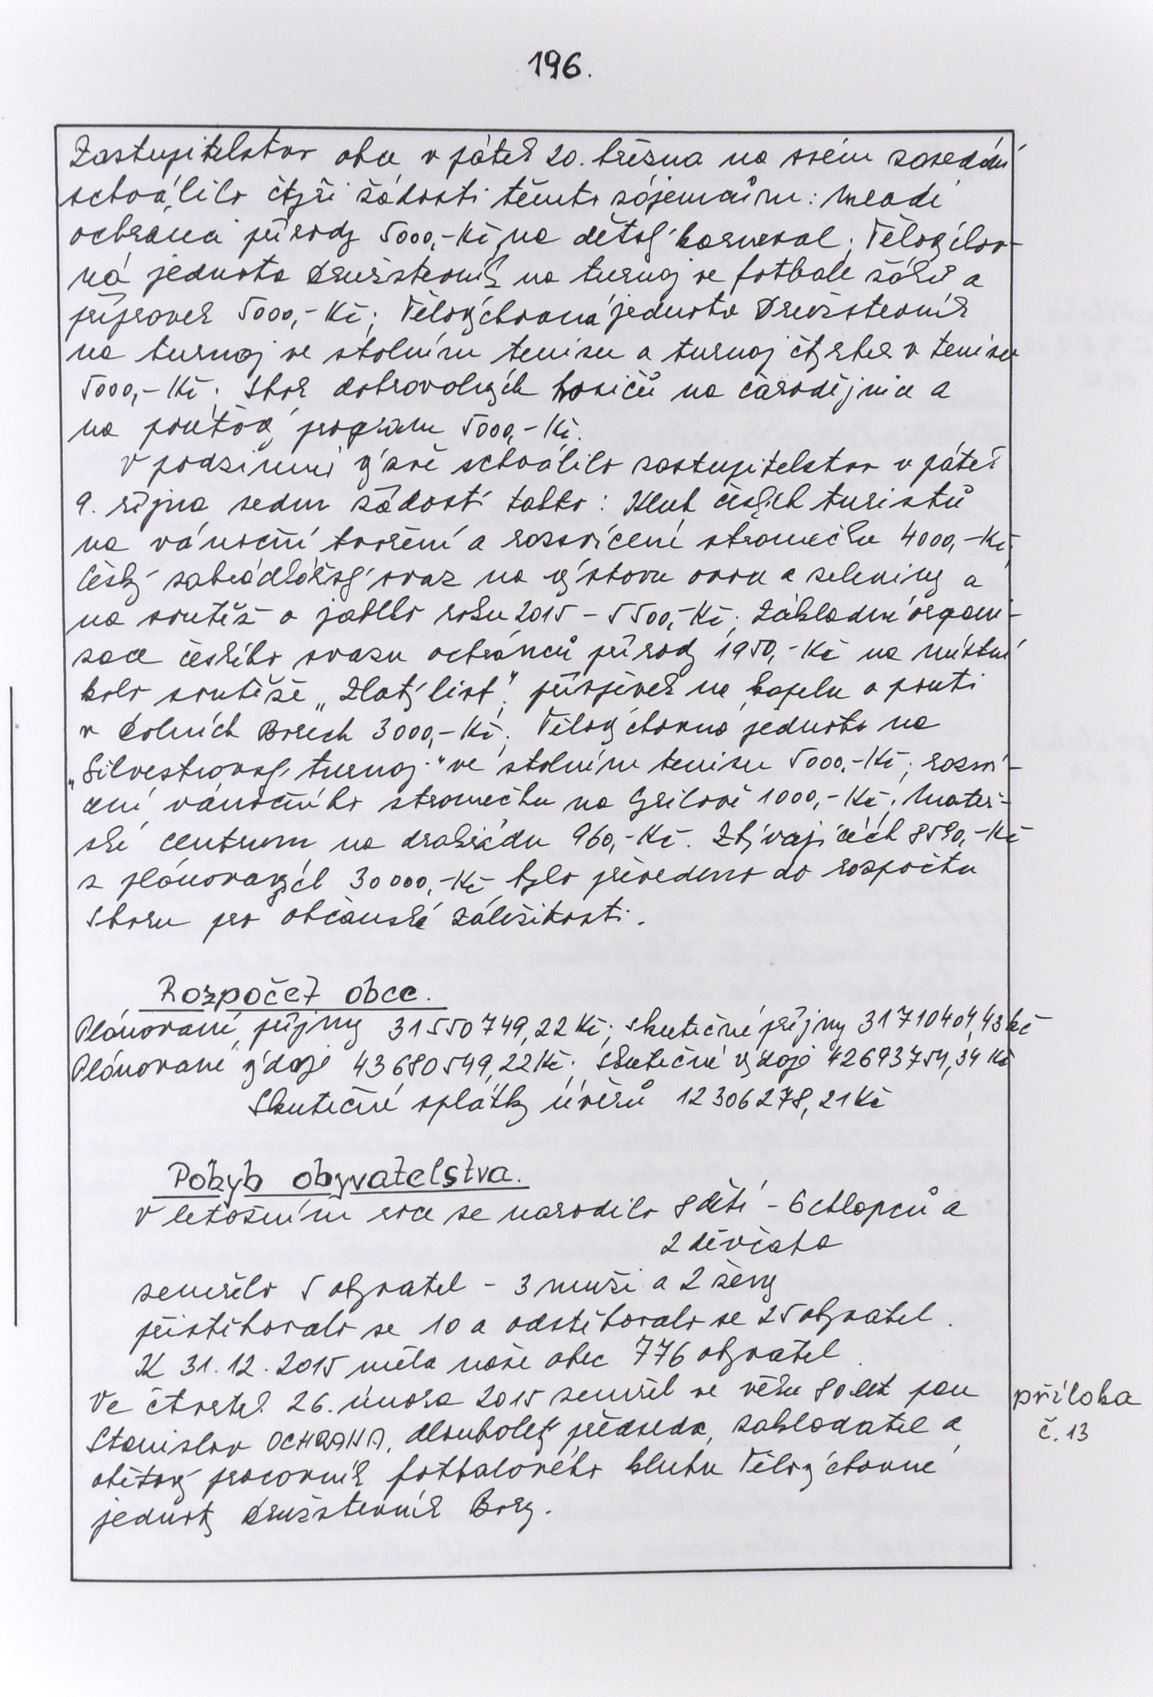 196.
Zastupitelstvo obce v pátek 20. března na svém zasedání
schválilo čtyři žádosti těmto zájemcům: Mladí
ochránci přírody 5000,-Kč na dětský karneval; Tělovýchov-
ná jednota Družstevník na turnaj ve fotbale žáků a
přípravek 5000,-Kč; Tělovýchovná jednota Družstevník
na turnaj ve stolním tenisu a turnaj čtyřher v tenisu
5000,-Kč; Sbor dobrovolných hasičů na čarodějnice a
na pouťový program 5000,-Kč.
V podzimní výzvě schválilo zastupitelstvo v pátek
9. října sedm žádostí takto: Klub českých turistů
na vánoční tvoření a rozsvícení stromečku 4000,-Kč;
Český zahrádkářský svaz na výstavu ovoce a zeleniny a
na soutěž o jablko roku 2015 - 5500,-Kč; Základní organi-
zace českého svazu ochránců přírody 1950,-Kč na místní
kolo soutěže „Zlatý list“; příspěvek na kapelu o pouti
v Dolních Borech 3000,-Kč; Tělovýchovná jednota na
„Silvestrovský turnaj“ ve stolním tenisu 5000,-Kč; rozsví-
cení vánočního stromečku na Grilově 1000,-Kč; Mateř-
ské centrum na drakiádu 960,-Kč. Zbývajících 8590,-Kč
z plánovaných 30000,-Kč bylo převedeno do rozpočtu
Sboru pro občanské záležitosti.
Rozpočet obce.
Plánované příjmy 31550749,22 Kč; skutečné příjmy 31710404,43 Kč
Plánované výdaje 43680549,22 Kč; Skutečné výdaje 42693754,34 Kč
Skutečné splátky úvěrů 12306278,21 Kč
Pohyb obyvatelstva.
V letošním roce se narodilo 8 dětí - 6 chlapců a
2 děvčata
zemřelo 5 obyvatel - 3 muži a 2 ženy
přistěhovalo se 10 a odstěhovalo se 25 obyvatel.
K 31.12.2015 měla naše obec 776 obyvatel.
Ve čtvrtek 26. února 2015 zemřel ve věku 80 let pan
příloha
č.13
Stanislav OCHRANA, dlouholetý předseda, zakladatel a
obětavý pracovník fotbalového klubu Tělovýchovné
jednoty Družstevník Bory.